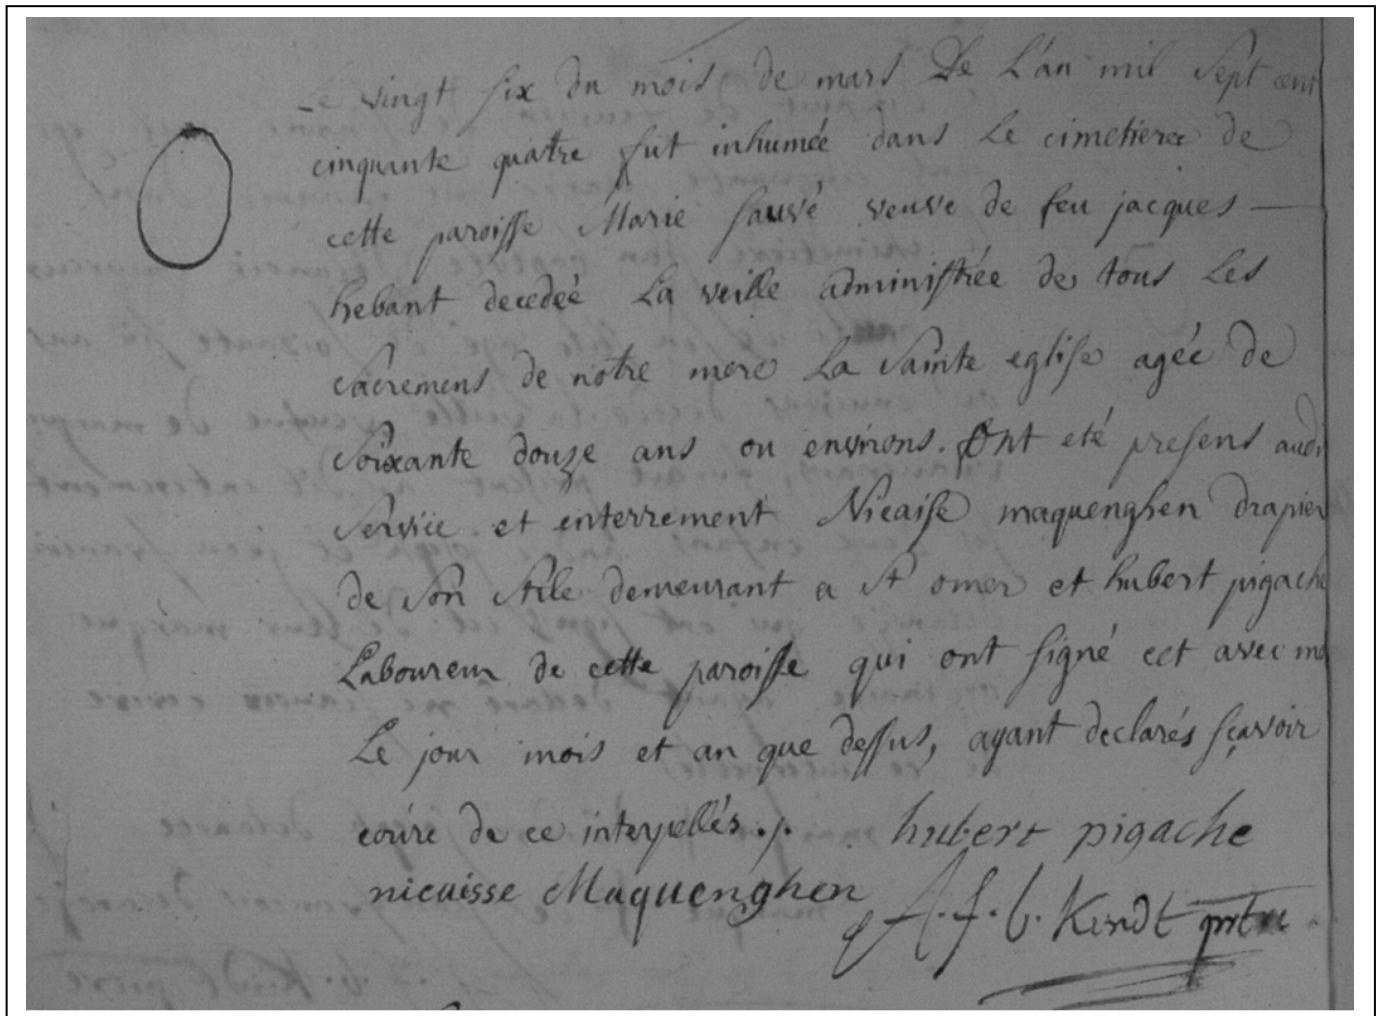 Le vingt six du mois de mars De L'an mil Sept cent
cinquante quatre fut inhumée dans Le cimetiere de
cette paroisse Marie Sauvé veuve de feu jacques —
hebant decedeé La veille administrée de tous Les
Sacremens de notre mere La Sainte eglise agée de
Soixante douze ans ou environs. Ont eté presens aud.
Service et enterrement Nicaise maquenghen drapier
de Son Stile demeurant a St omer et hubert pigache
Laboureur de cette paroisse qui ont signé cet avec mo
Le jour mois et an que dessus, ayant declarés sçavoir
ecrire de ce interpellés ./. hubert pigache
nicaisse Maquenghen A. f. b. Kindt